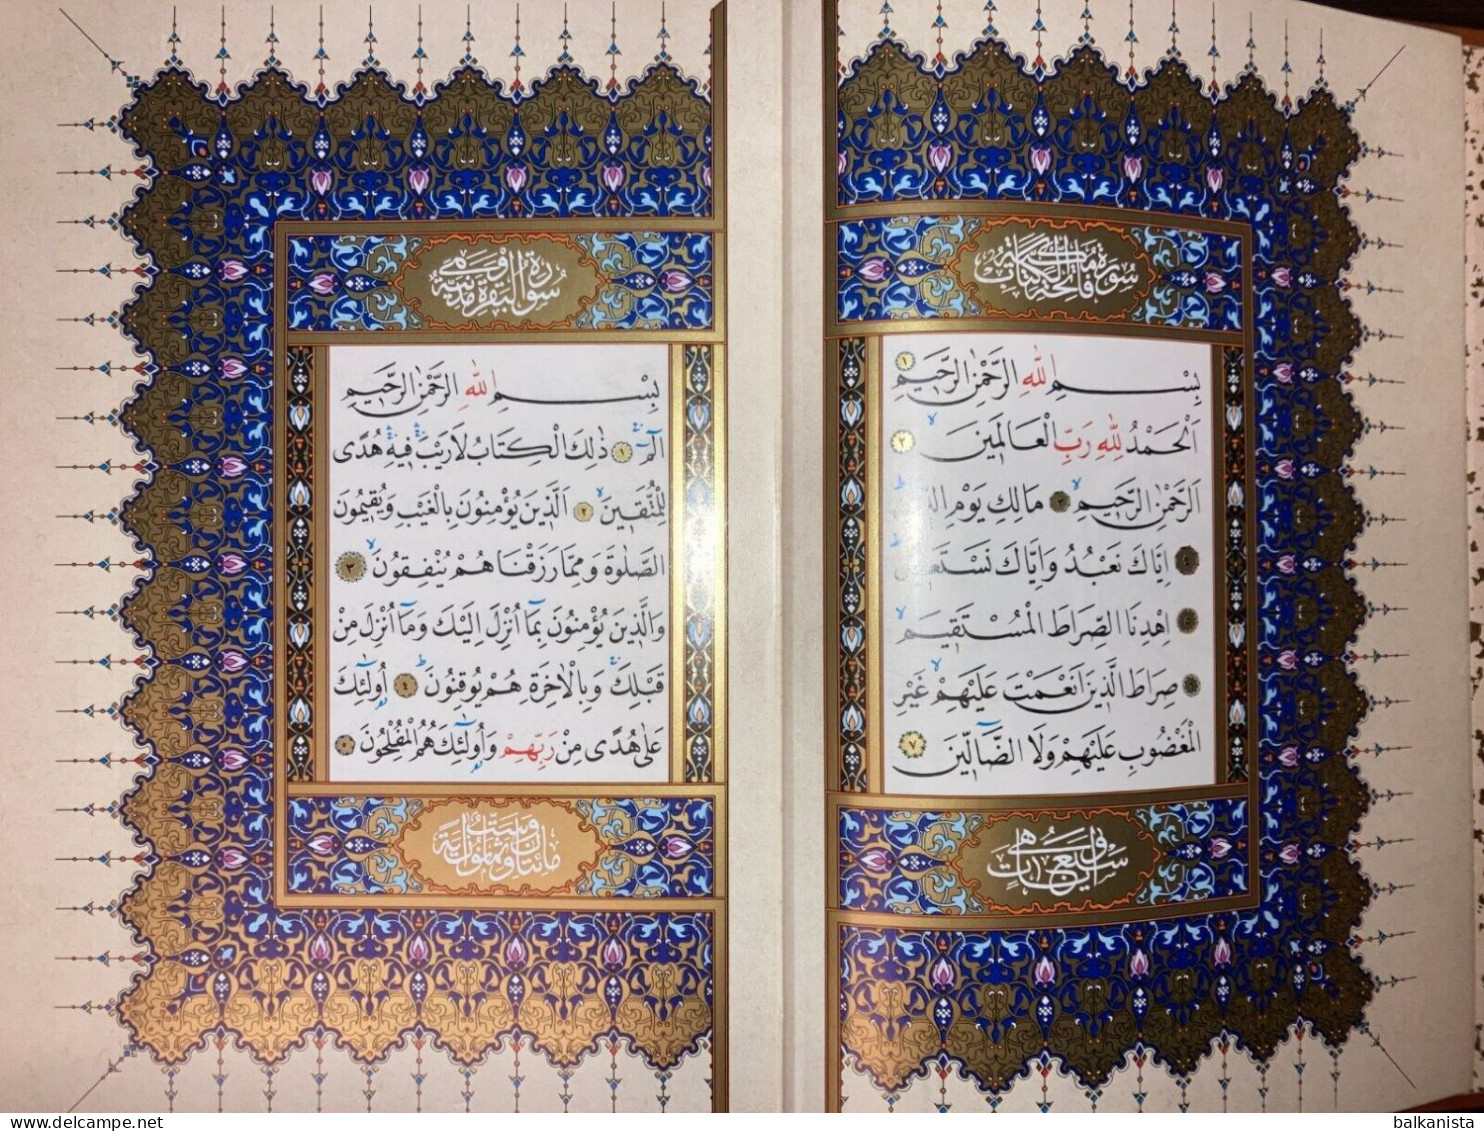 سورة فاتحة الكتاب
بِسْمِ اللهِ الرَّحْمٰنِ الرَّحِيمِ ١
اَلْحَمْدُ لِلّٰهِ رَبِّ الْعَالَمِينَ ٢
اَلرَّحْمٰنِ الرَّحِيمِ ٣ مَالِكِ يَوْمِ
٤ اِيَّاكَ نَعْبُدُ وَاِيَّاكَ نَسْتَعِينُ
٥ اِهْدِنَا الصِّرَاطَ الْمُسْتَقِيمَ
٦ صِرَاطَ الَّذِينَ اَنْعَمْتَ عَلَيْهِمْ غَيْرِ
الْمَغْضُوبِ عَلَيْهِمْ وَلَا الضَّالِّينَ ٧
وهي سبع آيات
سورة البقرة مدنية وهي
بِسْمِ اللهِ الرَّحْمٰنِ الرَّحِيمِ
الٓمٓ ١ ذٰلِكَ الْكِتَابُ لَا رَيْبَ فِيهِ هُدًى
لِلْمُتَّقِينَ ٢ اَلَّذِينَ يُؤْمِنُونَ بِالْغَيْبِ وَيُقِيمُونَ
الصَّلٰوةَ وَمِمَّا رَزَقْنَاهُمْ يُنْفِقُونَ ٣
وَالَّذِينَ يُؤْمِنُونَ بِمَٓا اُنْزِلَ اِلَيْكَ وَمَٓا اُنْزِلَ مِنْ
قَبْلِكَ وَبِالْاٰخِرَةِ هُمْ يُوقِنُونَ ٤ اُولٰٓئِكَ
عَلٰى هُدًى مِنْ رَبِّهِمْ وَاُولٰٓئِكَ هُمُ الْمُفْلِحُونَ ٥
مائتان وست وثمانون آية
delcampe.net
balkanista